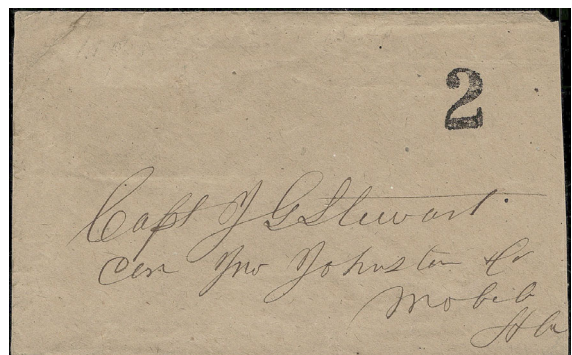 2
Capt J G Stewart
Care Jno Johnston & Co
Mobile
Ala